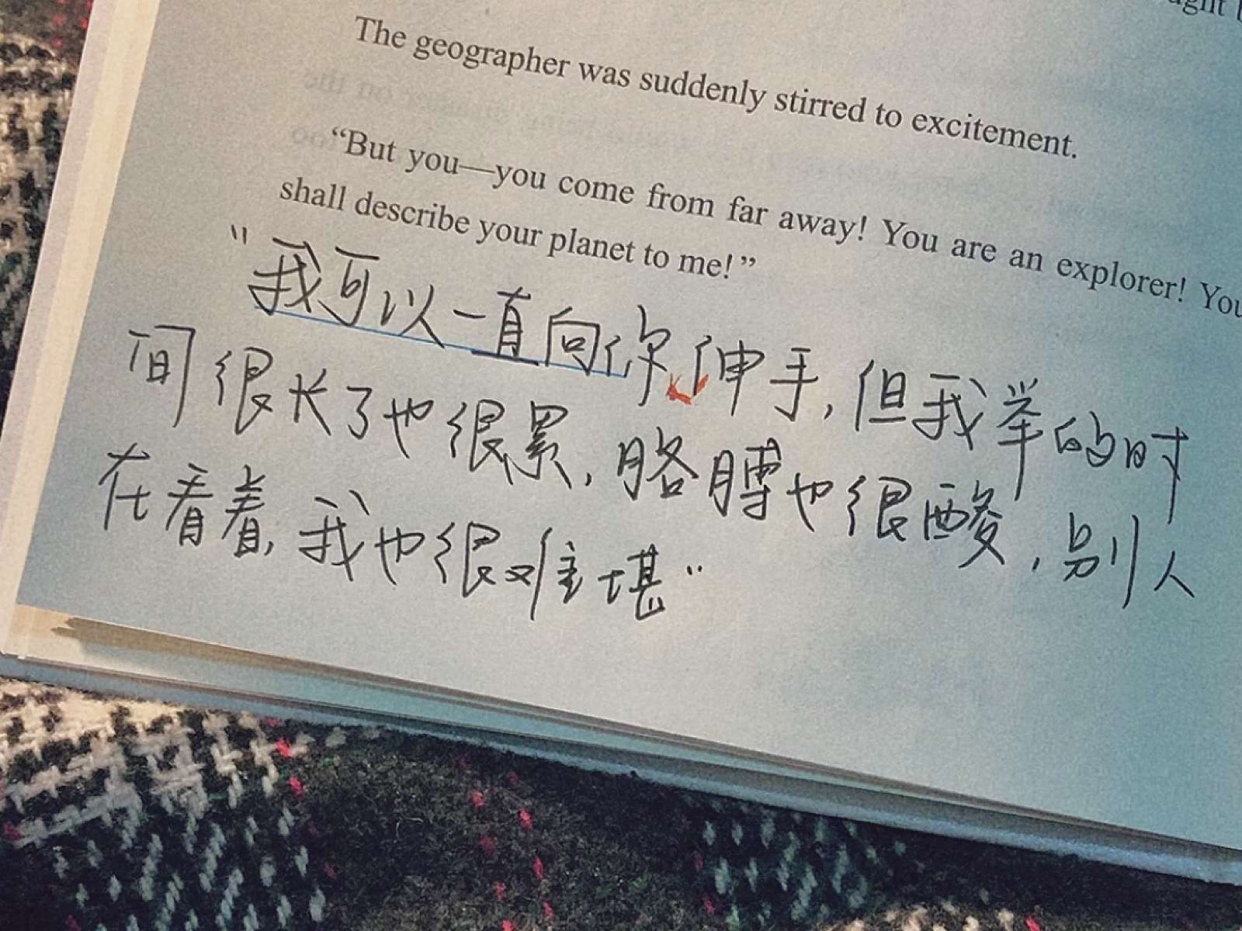 The geographer was suddenly stirred to excitement.
“But you—you come from far away! You are an explorer! You
shall describe your planet to me!”
“我可以一直向你伸手,但我举的时
间很长了也很累,胳膊也很酸,别人
在看着,我也很难堪”